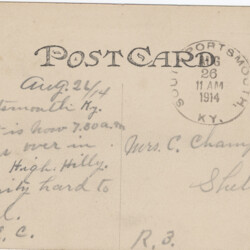 POST CARD
SOUTH PORTSMOUTH, KY.
AUG 26 11 AM 1914
Aug. 26/14
tsmouth Ky.
is now 7.00 a.m
over in
High. Hilly.
hard to
C.
Mrs. C. Champ
R. 3.